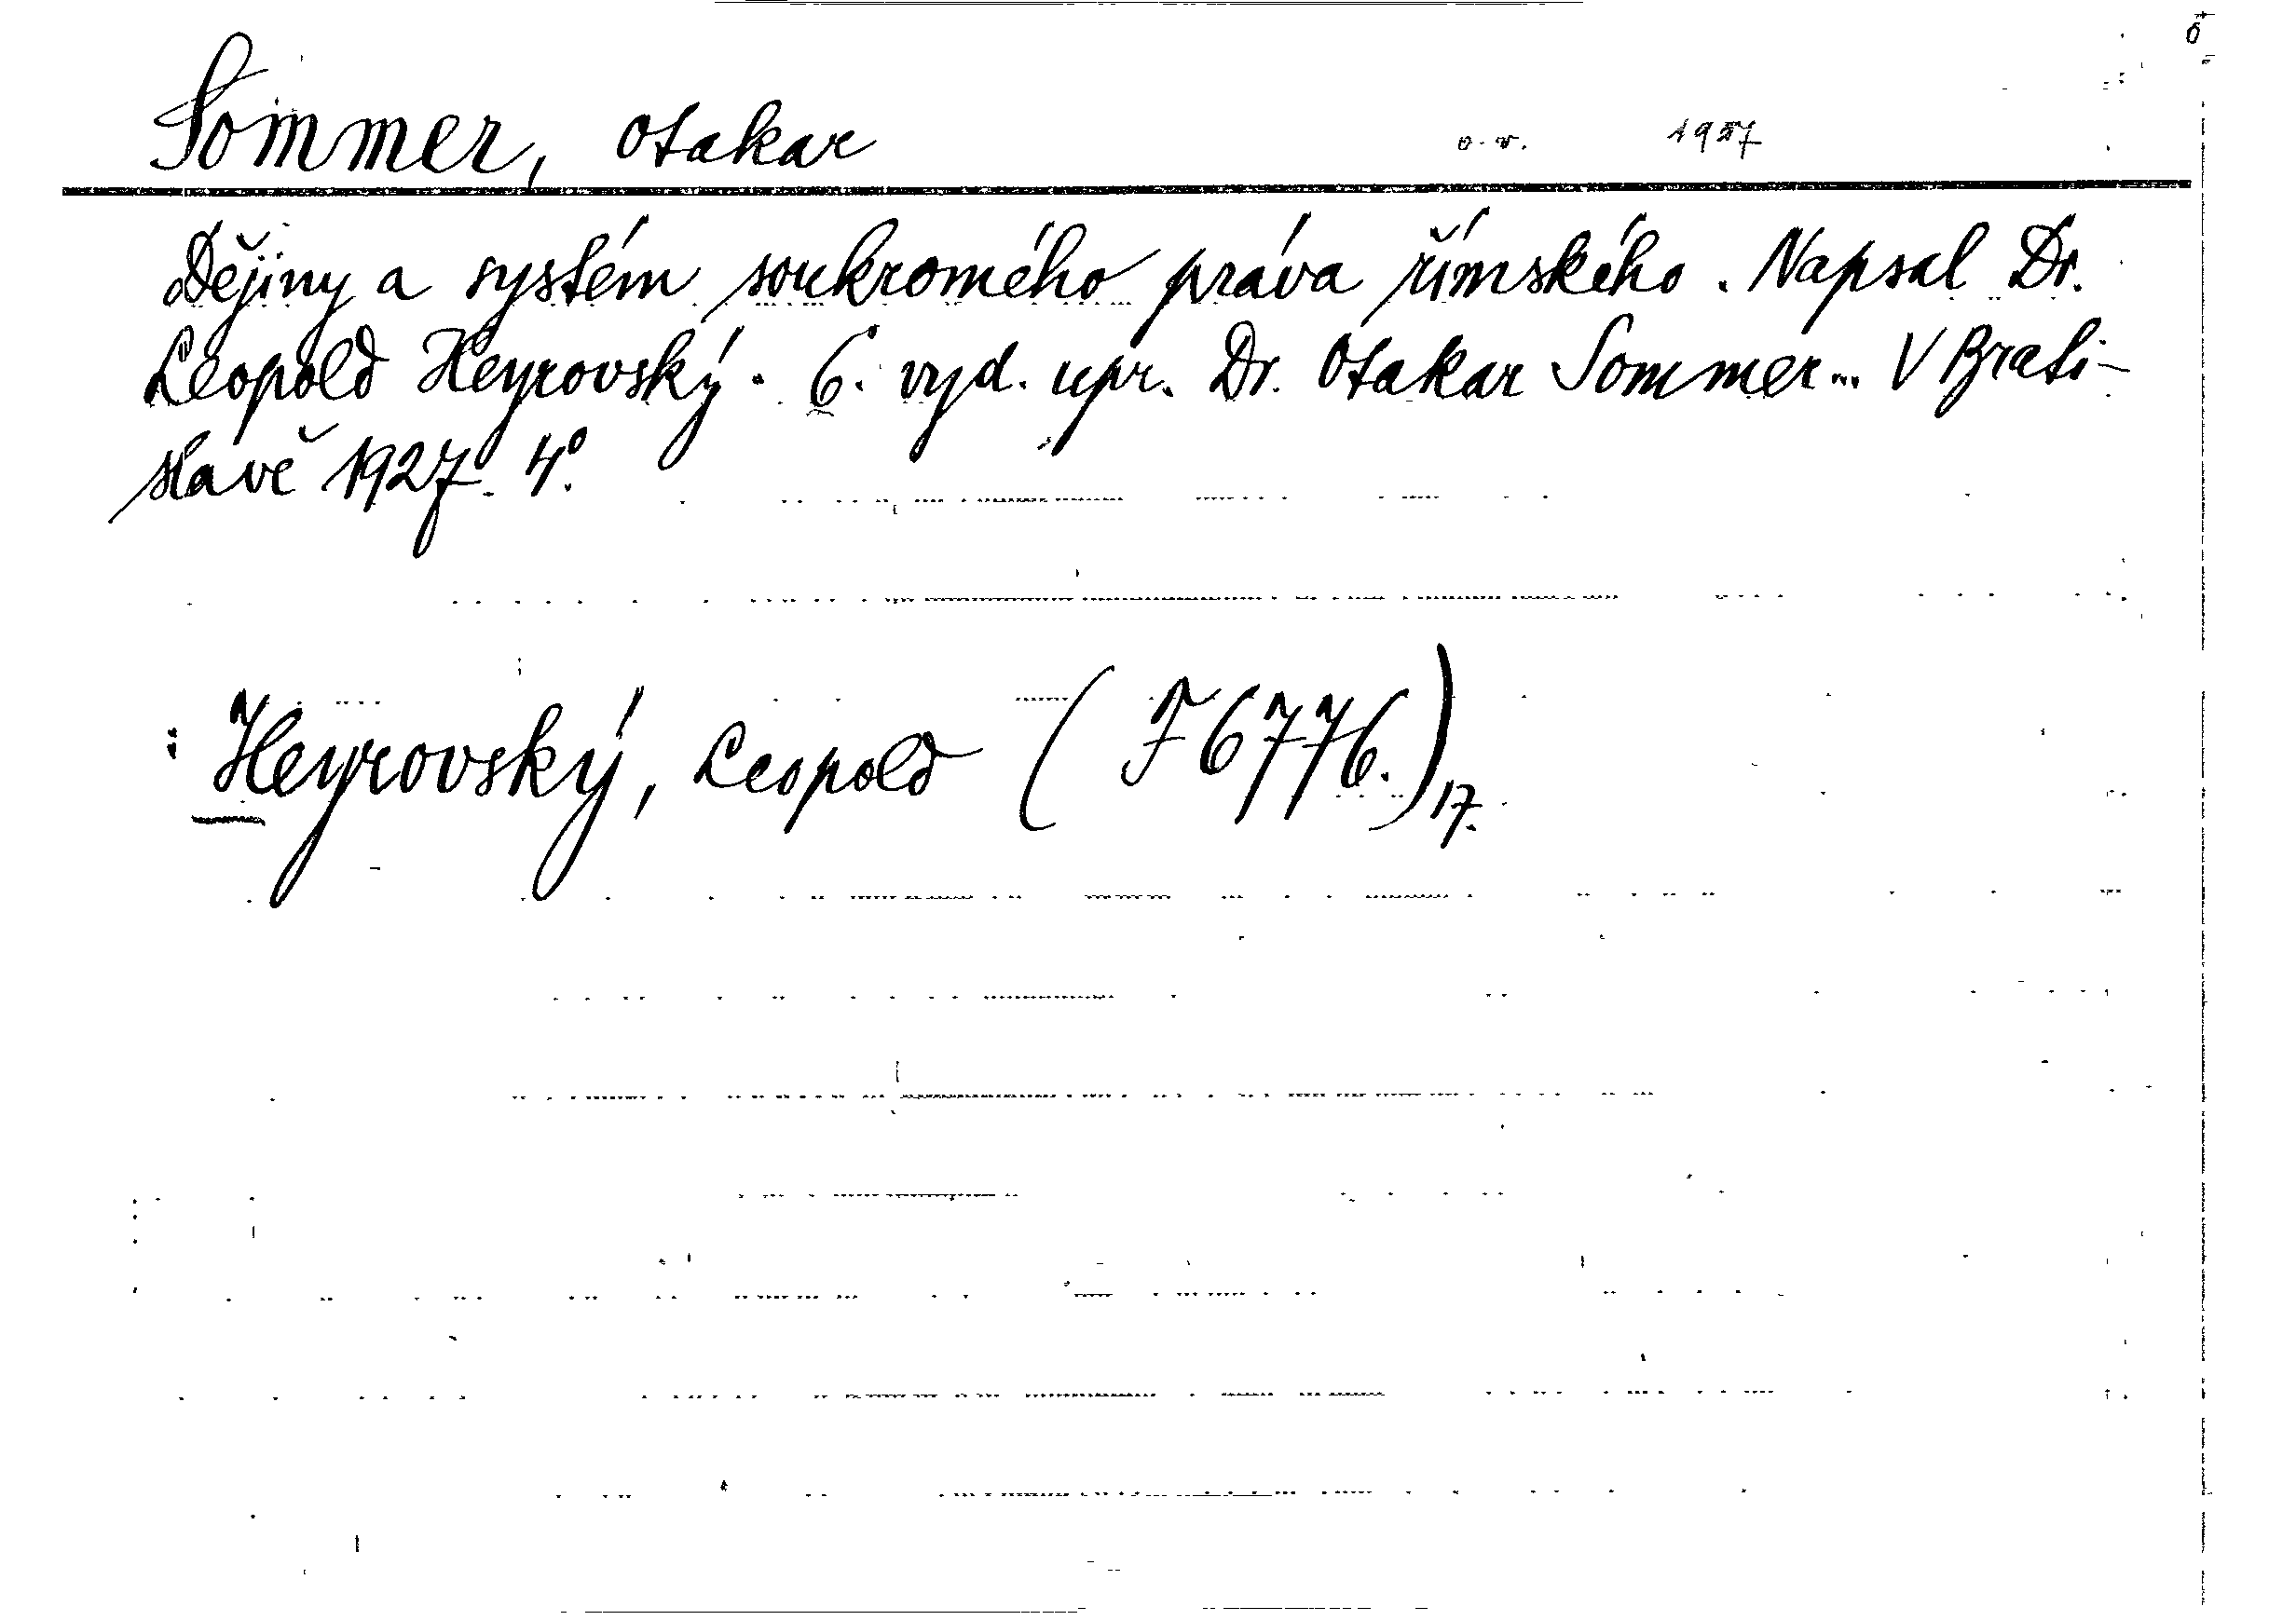 Sommer, Otakar o. v. 1927
Dějiny a systém soukromého práva římského. Napsal Dr.
Leopold Heyrovský. 6. vyd. upr. Dr. Otakar Sommer... V Brati-
slavě 1927. 4°.
: Heyrovský, Leopold (F 6776.) 17.